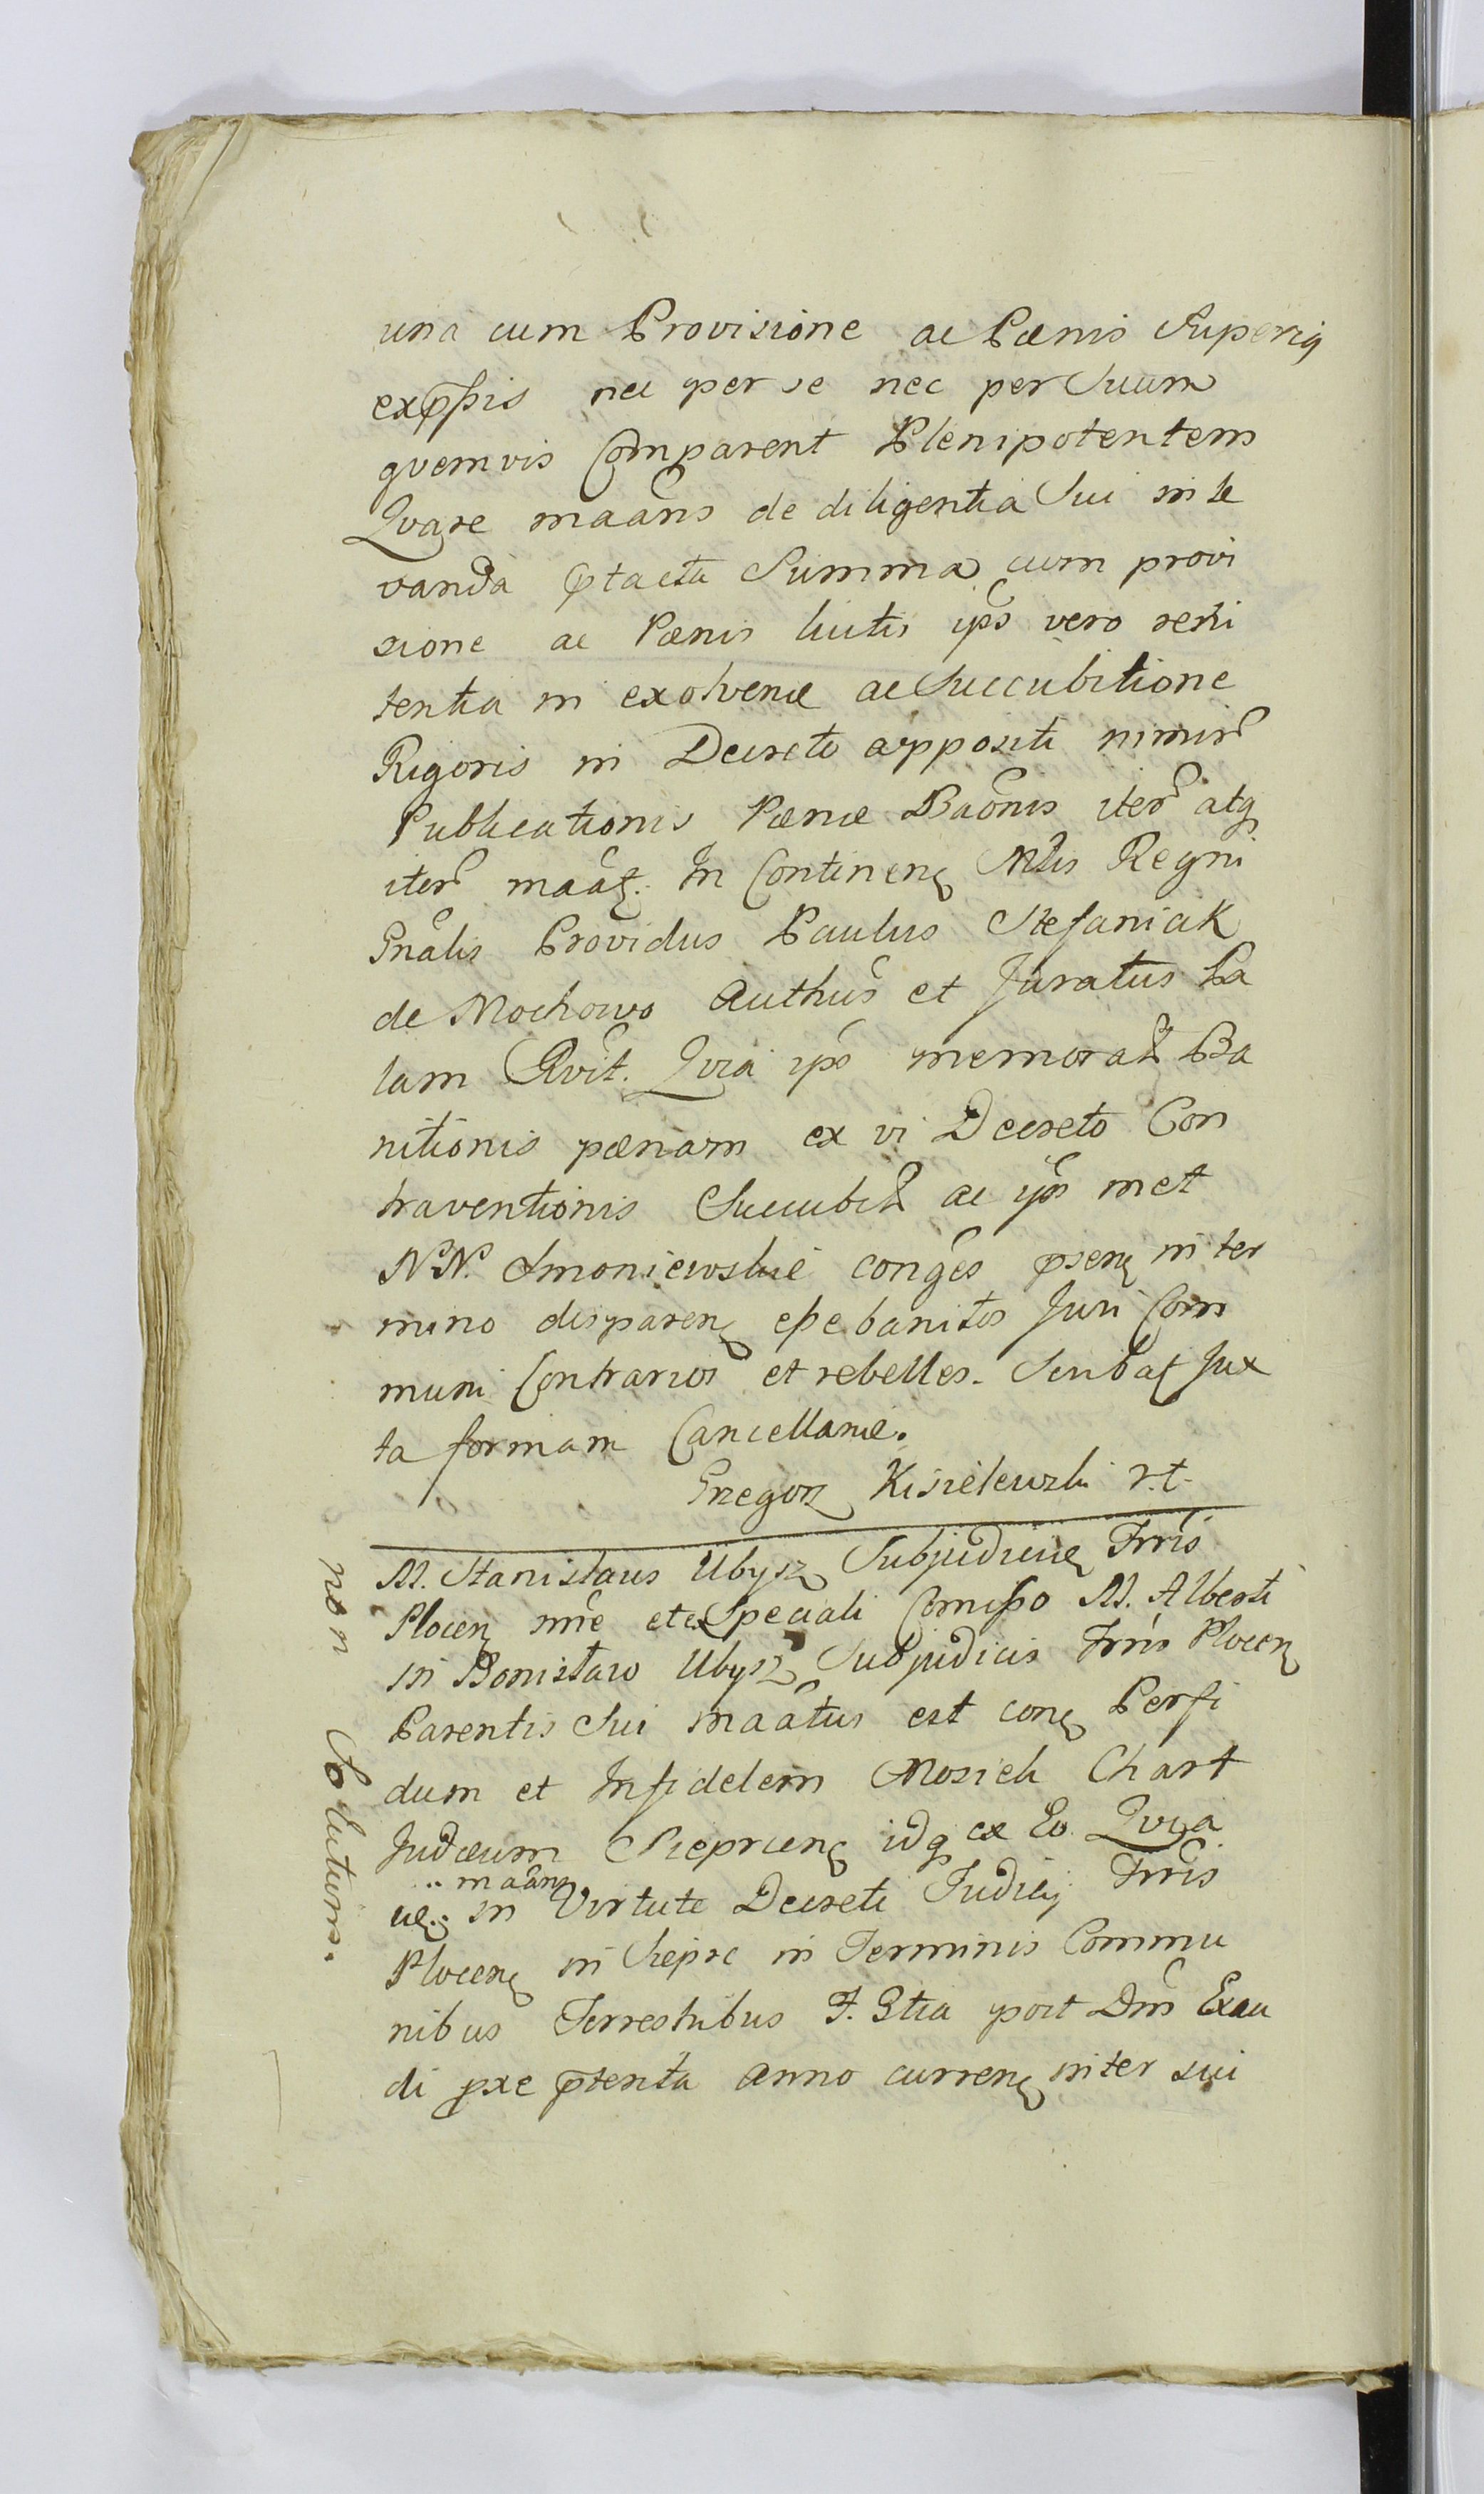 una cum Provisione ac Pænis Superiq
exp̃ssis nec per se nec per Suum
qvemvis Comparent Plenipotentem
Qvare maãns de diligentia Sui in le
vanda p̃tacta Summa cum provi
sione ac Pænis luitis ip̃s vero reni
tentia in exolvenda ac Succubitione
Rigoris in Decreto appositi nimir̃
Publicationis Pænæ Bãonis iter̃ atq
iter̃ maãt. In Continen Mtis Regni
Gnãlis Providus Paulus Stefaniak
de Mochowo Authus̃ et Juratus Pa
lam Rvit. Qvia ips̃ memorat Ba
nitionis pænam ex vi Decreto Con
traventionis Succubit ac ips̃ met
N.N. Smoniewskie cong̃es p̃sen in ter
mino disparen eße banitos Juri Com
muni Contrarios et rebelles. Scribat Jux
ta formam Cancellariæ.
Grzegorz Kisielewski r.t.
M. Stanislaus Ubysz Subjudicus Trr̃is
Plocen nõie et ex Speciali Comißo M. Alberti
in Bonislaw Ubysz Subjudicis Trr̃is Plocen
Parentis Sui maãtus est con Perfi
dum et Infidelem Mosiek Chart
Judæum Sieprcen idq ex Eo. Qvia
maãns
in Virtute Decreti Judicij Trr̃is
Plocen in Sieprc in Terminis Commu
nibus Terrestribus F. 3tia post Dm̃ Exau
di pxe p̃tenta Anno curren inter sui
non Solutum.